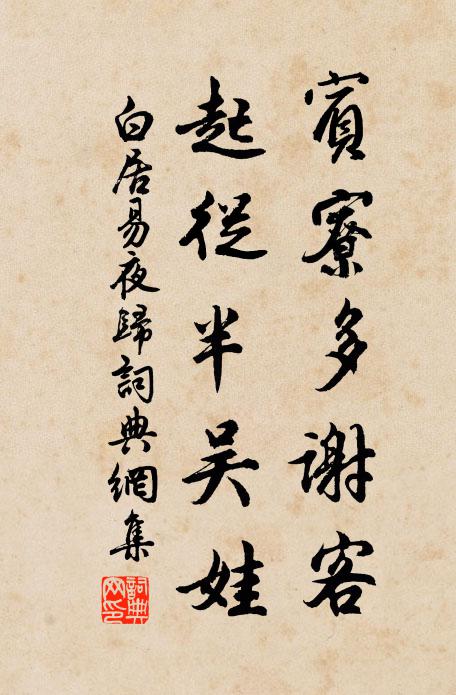 賓寮多謝客
起從半吳娃
白居易夜歸詞典網集
詞典
網印